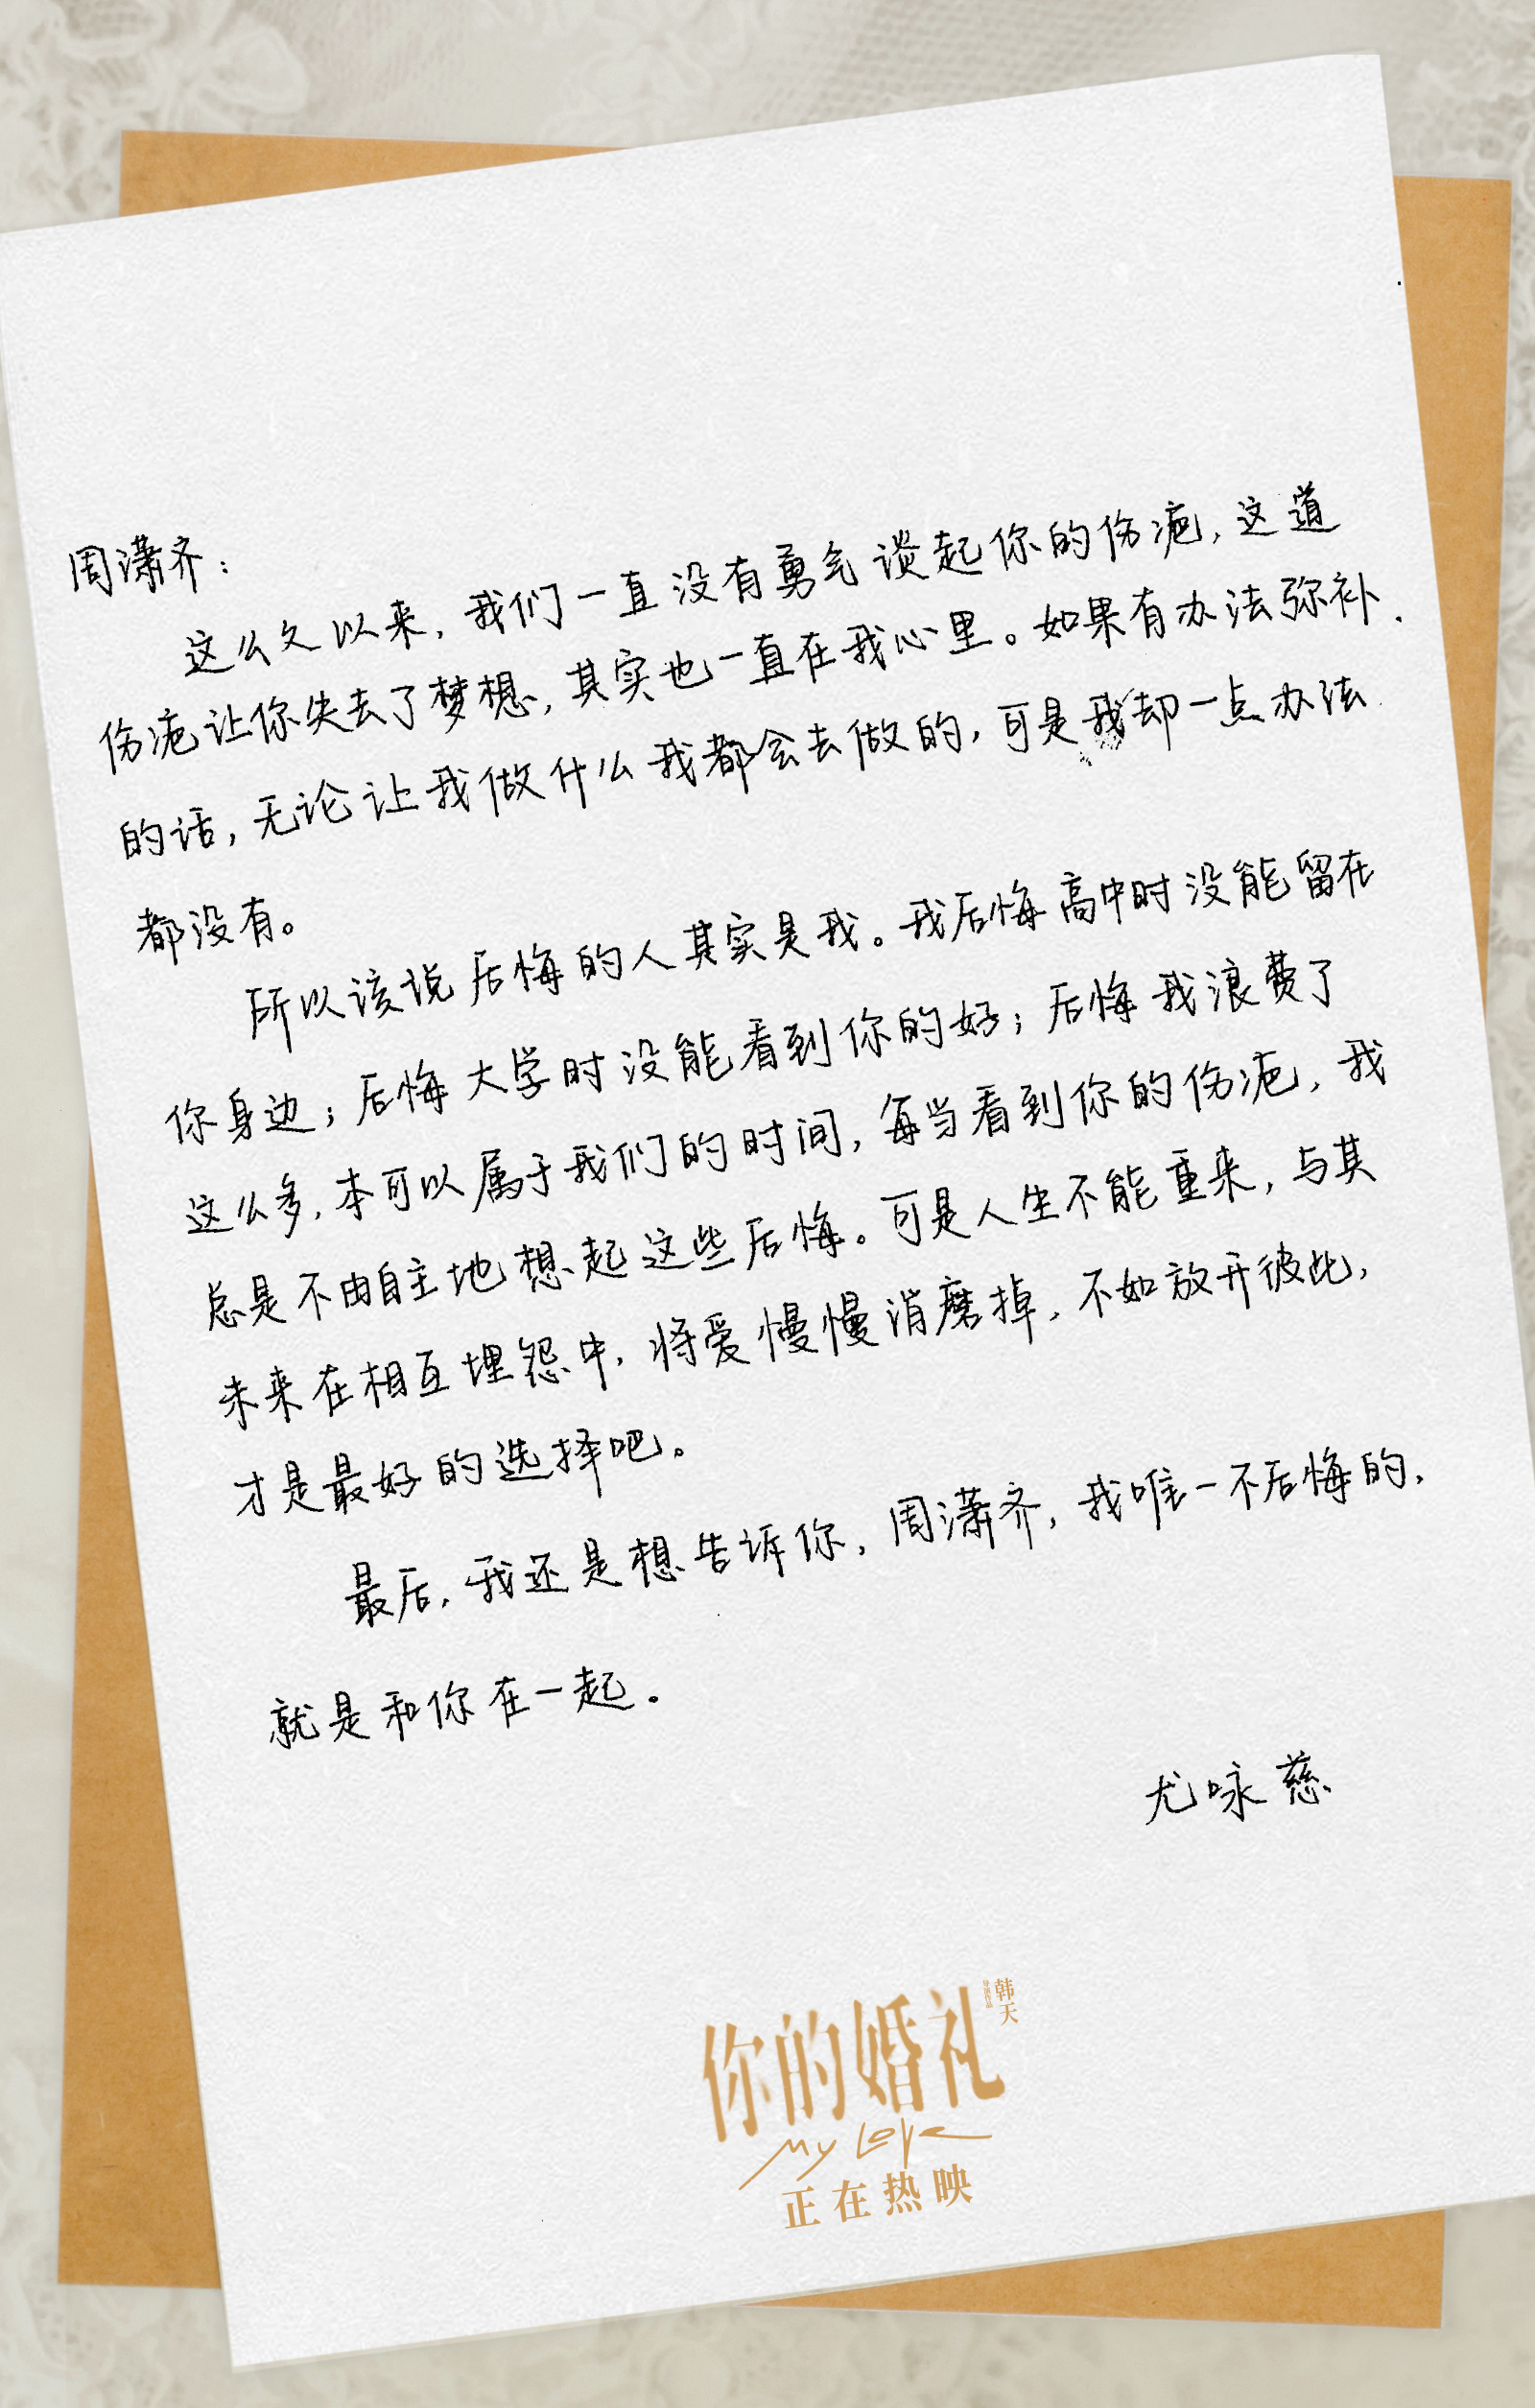 周潇齐：
这么久以来，我们一直没有勇气谈起你的伤疤，这道
伤疤让你失去了梦想，其实也一直在我心里。如果有办法弥补
的话，无论让我做什么我都会去做的，可是我却一点办法
都没有。
所以该说后悔的人其实是我。我后悔高中时没能留在
你身边；后悔大学时没能看到你的好；后悔我浪费了
这么多，本可以属于我们的时间，每当看到你的伤疤，我
总是不由自主地想起这些后悔。可是人生不能重来，与其
未来在相互埋怨中，将爱慢慢消磨掉，不如放开彼此，
才是最好的选择吧。
最后，我还是想告诉你，周潇齐，我唯一不后悔的，
就是和你在一起。
尤咏慈
你的婚礼
韩天
导演作品
My Love
正在热映